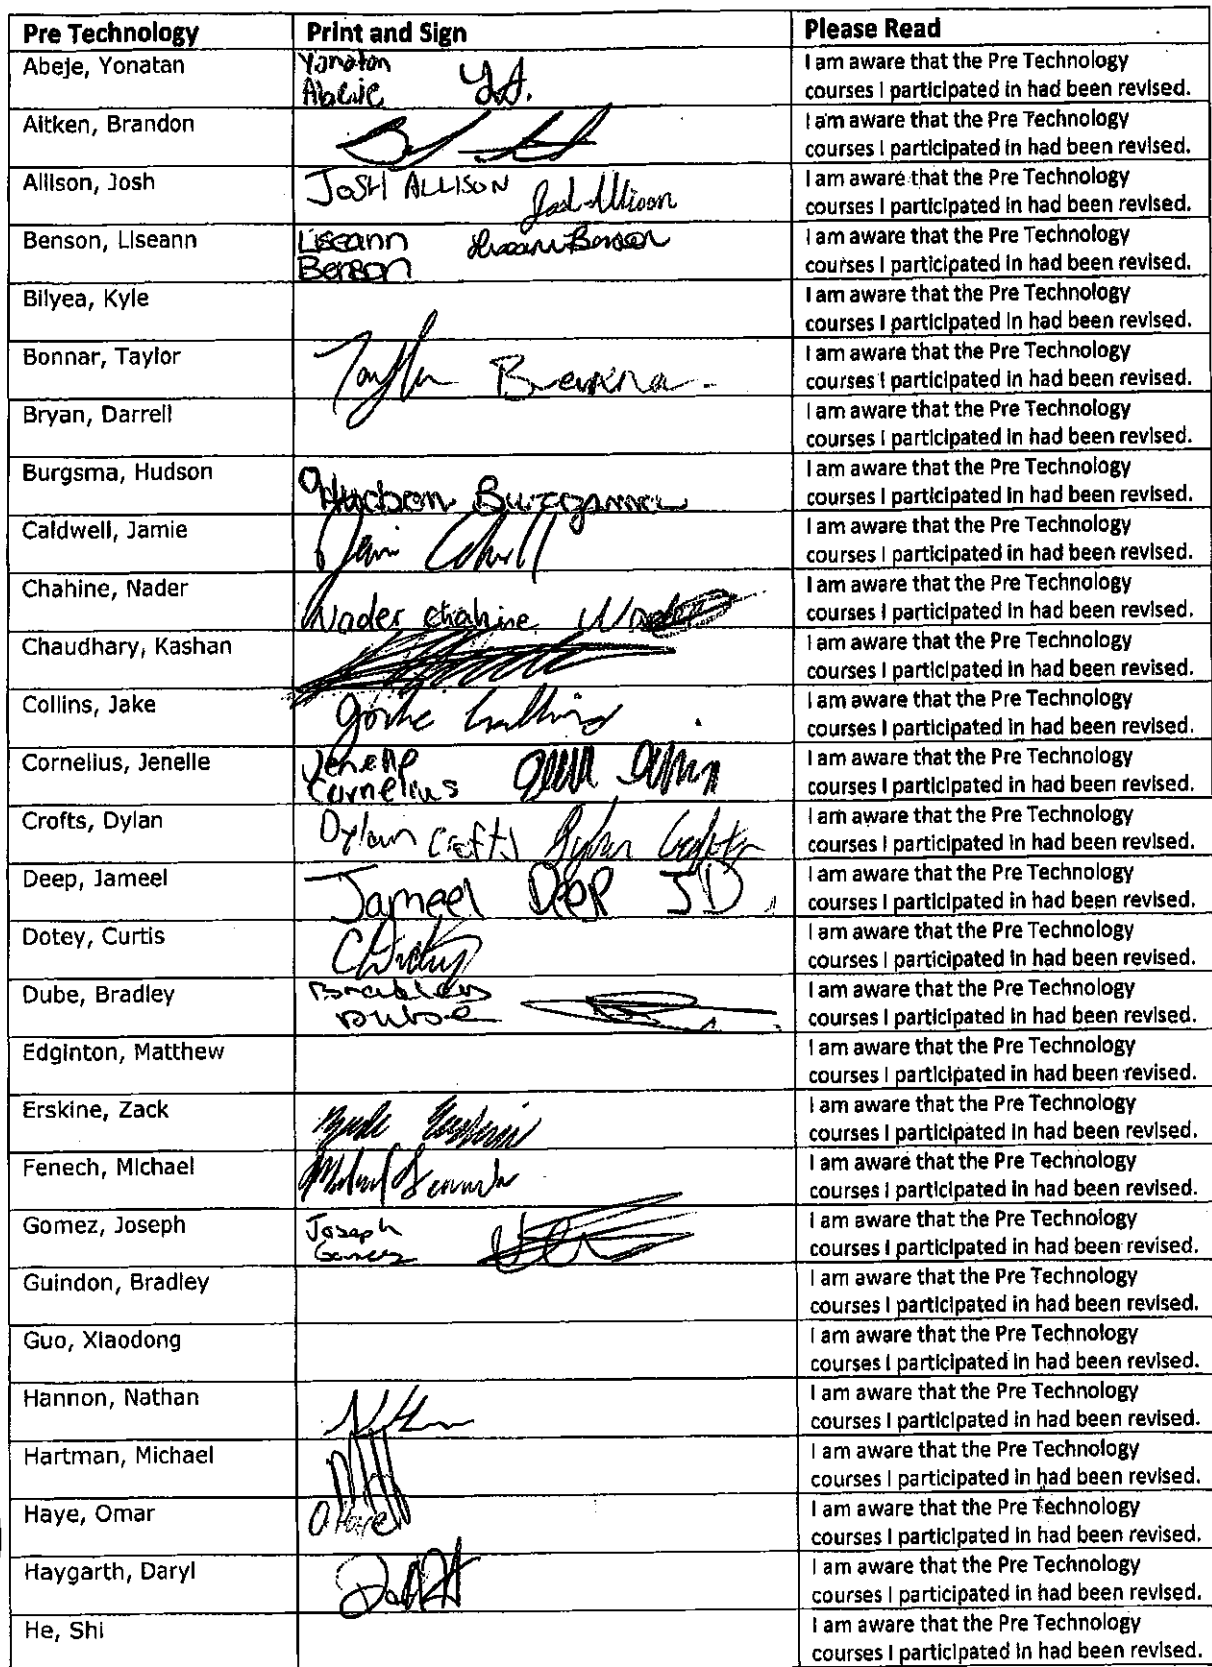 Pre Technology Print and Sign Please Read
Abeje, Yonatan Yonatan I am aware that the Pre Technology
Abeje Y.A. courses I participated in had been revised.
Aitken, Brandon I am aware that the Pre Technology
courses I participated in had been revised.
Allison, Josh JOSH ALLISON Josh Allison I am aware that the Pre Technology
courses I participated in had been revised.
Benson, Liseann Liseann Liseann Benson I am aware that the Pre Technology
Benson courses I participated in had been revised.
Bilyea, Kyle I am aware that the Pre Technology
courses I participated in had been revised.
Bonnar, Taylor Taylor I am aware that the Pre Technology
courses I participated in had been revised.
Bryan, Darrell I am aware that the Pre Technology
courses I participated in had been revised.
Burgsma, Hudson Hudson I am aware that the Pre Technology
courses I participated in had been revised.
Caldwell, Jamie I am aware that the Pre Technology
courses I participated in had been revised.
Chahine, Nader Nader chahine Nader I am aware that the Pre Technology
courses I participated in had been revised.
Chaudhary, Kashan I am aware that the Pre Technology
courses I participated in had been revised.
Collins, Jake Jake Collins I am aware that the Pre Technology
courses I participated in had been revised.
Cornelius, Jenelle Jenelle I am aware that the Pre Technology
Cornelius courses I participated in had been revised.
Crofts, Dylan Dylan Crofts Dylan Crofts I am aware that the Pre Technology
courses I participated in had been revised.
Deep, Jameel Jameel Deep JD I am aware that the Pre Technology
courses I participated in had been revised.
Dotey, Curtis I am aware that the Pre Technology
courses I participated in had been revised.
Dube, Bradley Bradley I am aware that the Pre Technology
Dube courses I participated in had been revised.
Edginton, Matthew I am aware that the Pre Technology
courses I participated in had been revised.
Erskine, Zack I am aware that the Pre Technology
courses I participated in had been revised.
Fenech, Michael I am aware that the Pre Technology
courses I participated in had been revised.
Gomez, Joseph Joseph I am aware that the Pre Technology
Gomez courses I participated in had been revised.
Guindon, Bradley I am aware that the Pre Technology
courses I participated in had been revised.
Guo, Xiaodong I am aware that the Pre Technology
courses I participated in had been revised.
Hannon, Nathan I am aware that the Pre Technology
courses I participated in had been revised.
Hartman, Michael I am aware that the Pre Technology
courses I participated in had been revised.
Haye, Omar O Haye I am aware that the Pre Technology
courses I participated in had been revised.
Haygarth, Daryl I am aware that the Pre Technology
courses I participated in had been revised.
He, Shi I am aware that the Pre Technology
courses I participated in had been revised.